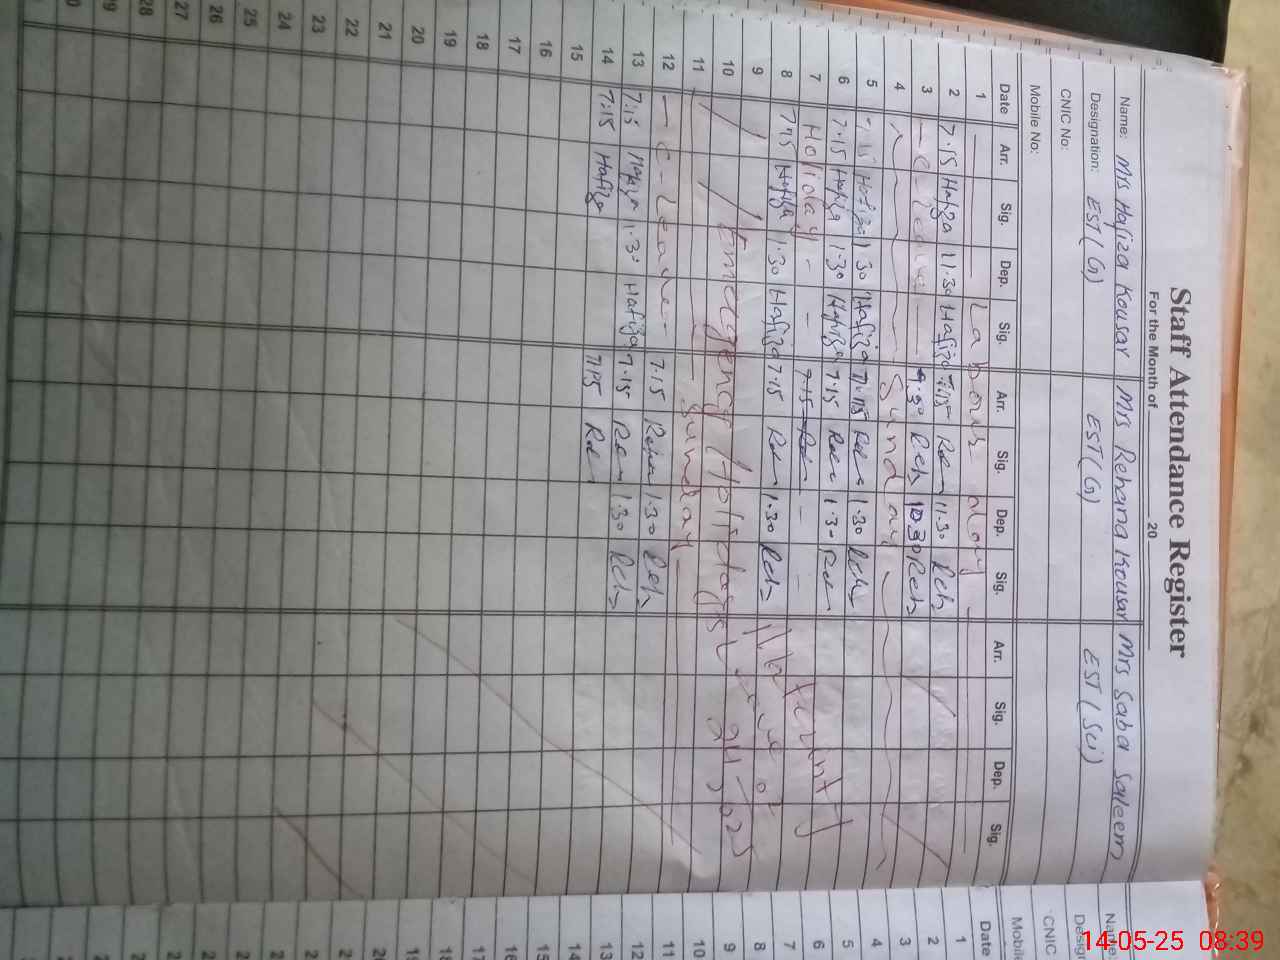 Staff Attendance Register
For the Month of 20
Name: Mrs Hafiza Kousar Mrs Rehana Kousar Mrs Saba Saleem
Designation: EST (G) EST (G) EST (Sci)
CNIC No:
Mobile No:
Date Arr. Sig. Dep. Sig. Arr. Sig. Dep. Sig. Arr. Sig. Dep. Sig.
1 Labour day
2 7.15 Hafiza 11.30 Hafiza 7.15 Reh 11.30 Reh
3 - C - Leave - 9.30 Reh 10.30 Reh
4 Sunday
5 7.15 Hafiza 1.30 Hafiza 7.15 Reh 1.30 Reh
6 7.15 Hafiza 1.30 Hafiza 7.15 Reh 1.30 Reh Maternity
7 Holiday - - 7.15 Reh - -
8 7.15 Hafiza 1.30 Hafiza 7.15 Reh 1.30 Reh Leave
9
10 Emergency Holidays
11 Sunday
12 - C - Leave - 7.15 Reh 1.30 Reh
13 7:15 Hafiza 1.30 Hafiza 7.15 Reh 1.30 Reh
14 7:15 Hafiza 7:15 Reh
15
16
17
18
19
20
21
22
23
24
25
26
27
28
29
Name
Mobile
CNIC
Date
1
2
3
4
5
6
7
8
9
10
11
12
13
14
15
16
17
18
19
14-05-25 08:39